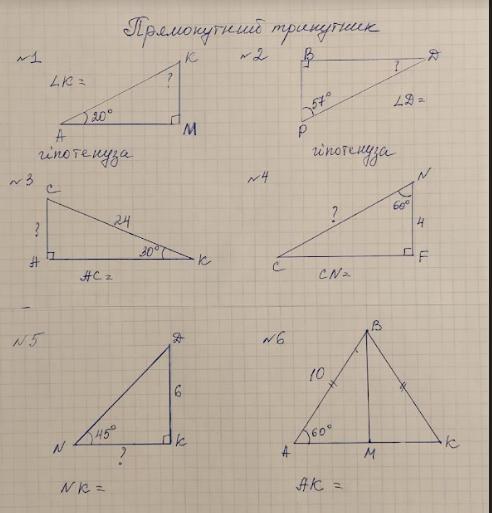 Прямокутний трикутник
№1
∠K =
K
?
A
20°
M
гіпотенуза
№2
B
D
?
57°
P
∠D =
гіпотенуза
№3
C
24
?
30°
A
K
AC =
№4
N
60°
?
4
C
F
CN =
№5
D
6
45°
N
K
?
NK =
№6
B
10
60°
A
M
K
AK =